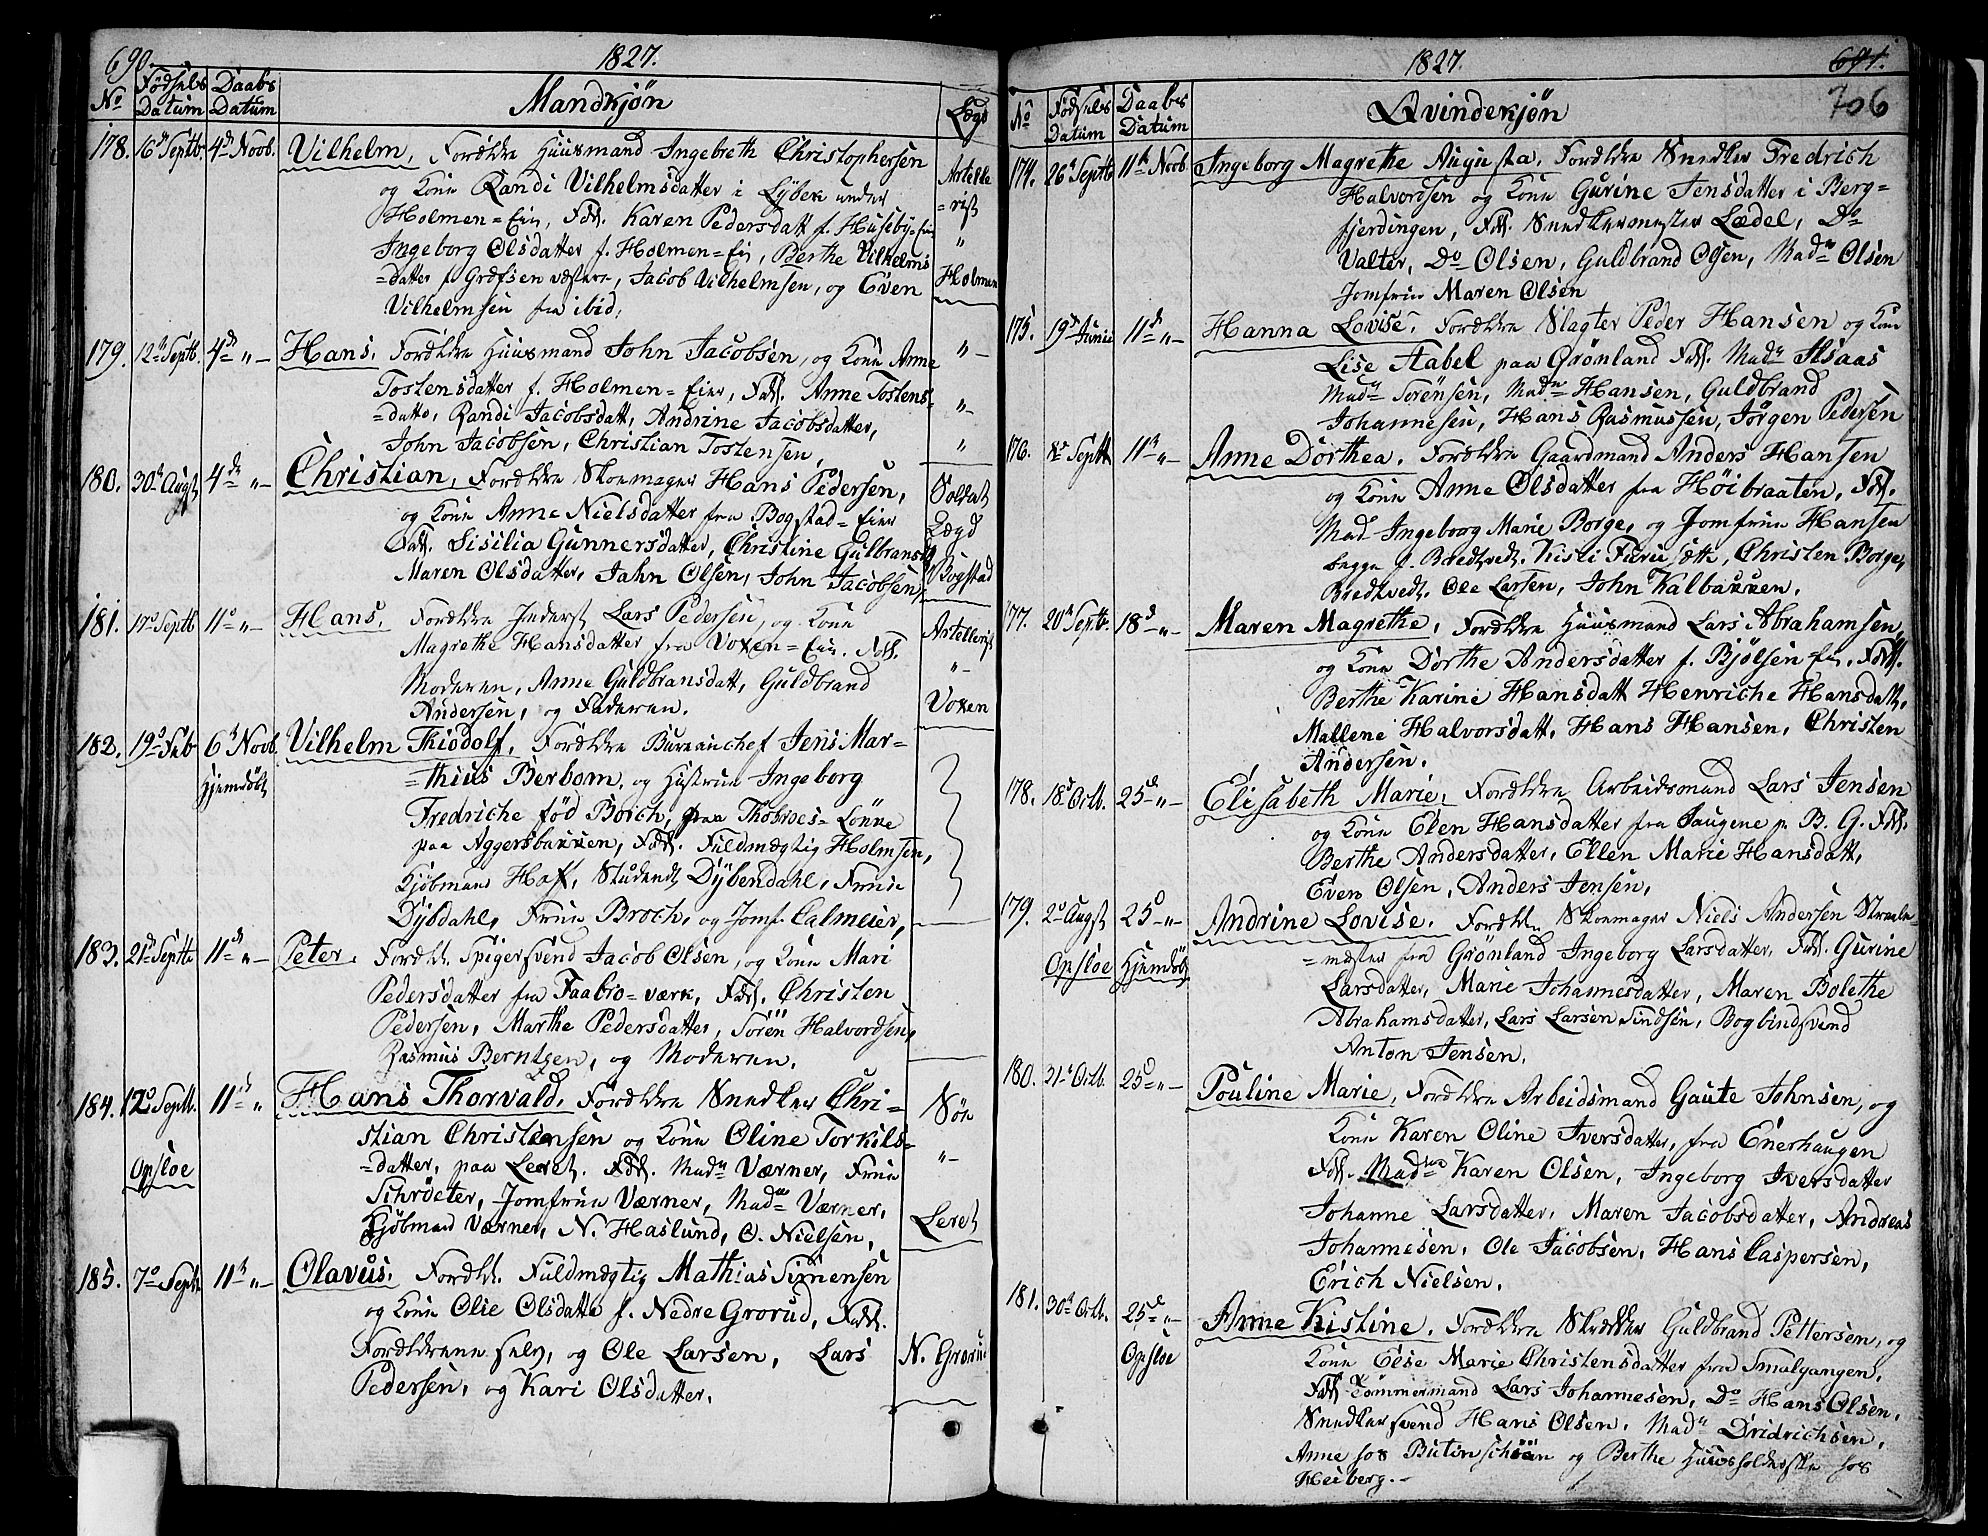 690. 1827.
No Fødsels Datum Daabs Datum Mandkjøn Lægd
178. 16d Septb. 4d Novb. Vilhelm, Forældre Huusmand Ingebreth Christophersen Artelle
og Kone Randi Vilhelmsdatter i Lybek under =rist
Holmen=Eie, Fad. Karen Pedersdatt f. Huseby=Eie
Ingeborg Olsdatter f. Holmen=Eie, Berthe Vilhelms "
=datter f. Grefsen vestere, Jacob Vilhelmsen, og Even Holmen
Vilhelmsen fra ibid.
179. 12te Septb. 4de "- Hans, Forældre Huusmand John Jacobsen, og Kone Anne "-
Tostensdatter f. Holmen=Eier, Fad. Anne Tostens=
=datte, Randi Jacobsdatt, Andrine Jacobsdatter, "-
John Jacobsen, Christian Tostensen, "
180. 30te Augst 4de "- Christian, Forældre Skomager Hans Pedersen, Soldat
og Kone Anne Nielsdatter fra Bogstad=Eier Lægd
Fad. Sisilia Gunnersdatter, Christine Gulbransd
Maren Olsdatter, Jahn Olsen, John Jacobsen, Bogstad
181. 17d Septb 11d "- Hans, Forældre Inderst Lars Pedersen, og Kone Artellerist
Magrethe Hansdatter fra Voxen=Eie. Fad. "-
Moderen, Anne Guldbransdatt, Guldbrand
Andersen, og Faderen. Voxen
182. 19d Feb 6te Novb. Vilhelm Thiodolf, Forældre Bureauchef Jens Mar=
Hjemdøbt =thius Berbom, og Hustrue Ingeborg
Fredriche fød Boich, paa Thosroes=Lønne
paa Aggersbakken, Fad. Fuldmægtig Holmsen,
Kjøbmand Hof, Student Dybendahl, Frue
Dybdahl, Frue Broch, og Jomf. Calmeier,
183. 21d Septb 11d "- Peter, Foreld. Spigersvend Jacob Olsen, og Kone Mari
Pedersdatter fra Faabro=værk, Fad. Christen
Pedersen, Marthe Pedersdatter, Sören Halvordsen,
Rasmus Berntzen, og Moderen.
184. 12d Septb. 11d " Hans Thorvald, Forældre Snedker Chri= Söe
stian Christensen og Kone Oline Torkils=
Opsloe =datter, paa Leret. Fad. Mad. Værner, Frue "-
Schröeter, Jomfrue Værner, Mad. Værner,
Kjöbmand Værner, N. Haslund, O. Nielsen, Leret
185. 7d Septb 11te "- Olavus, Foreld. Fuldmægtig Mathias Simensen
og Kone Olie Olsdatte f. Nedre Grorud, Fad.
Forældrene selv, og Ole Larsen, Lars N. Grorud
Pedersen, og Kari Olsdatter.
1827. 691.
706
No Fødsels Datum Daabs Datum Qvindekjøn
174. 26d Septb 11te Novb Ingeborg Magrethe Augusta, Forældre Snedker Fredrich
Halvordsen og Kone Gurine Jensdatter i Berg=
fjerdingen, Fad. Snedkermester Lædel, Do
Valter, Do Olsen, Guldbrand Olsen, Mad. Olsen
Jomfrue Maren Olsen
175. 19d Junii 11d "- Hanna Lovise, Forældre Slagter Peder Hansen og Kone
Lise Aabel paa Grønland Fad. Mad. Ilsaas
Mad. Sørensen, Mad. Hansen, Guldbrand
Johannesen, Hans Rasmussen, Jørgen Pedersen
176. Septb 11te "- Anne Dorthea, Forældre Gaardmand Anders Hansen
og Kone Anne Olsdatter fra Høibraaten, Fad.
Mad. Ingeborg Marie Borge, og Jomfrue Hansen
begge f. Bredtvedt. Kisti Furusett, Christen Borge,
Bredtvedt. Ole Larsen, John Kalbakken.
177. 20d Septb. 18d "- Maren Magrethe, Forældre Huusmand Lars Abrahamsen,
og Kone Dorthe Andersdatter f. Bjølsen Eie. Fad.
Berthe Karine Hansdatt Henriche Hansdatt,
Mallene Halvorsdatt, Hans Hansen, Christen
Andersen.
178. 18d Octb. 25d "- Elisabeth Marie, Forældre Arbeidsmand Lars Jensen
og Kone Elen Hansdatter fra Saugene p. B. G. Fad.
Berthe Andersdatter, Ellen Marie Hansdatt,
Even Olsen, Anders Jensen.
179. 2d Augst 25d "- Andrine Lovise, Foreld. Skomager Niels Andersen Straale=
Opsloe Hjemdøbt =mester fra Grønland Ingeborg Larsdatter, Fad. Gurine
Larsdatter, Marie Johannesdatter, Maren Bolethe
Abrahamsdatter, Lars Larsen Lindsen, Bogbindsvend
Anton Jensen.
180. 21d Octb. 25d "- Pouline Marie, Forældre Arbeidsmand Gaute Johnsen, og
Kone Karen Oline Iversdatter, fra Enerhaugen
Fad. Mad. Karen Olsen, Ingeborg Iversdatter
Johanne Larsdatter, Maren Jacobsdatter, Andreas
Johannesen, Ole Jacobsen, Hans Caspersen,
Erich Nielsen.
181. 30d Octb. 25d "- Anne Kistine, Forældre Skrædder Guldbrand Pettersen, og
Opsloe Kone Else Marie Christensdatter fra Smalgangen,
Fad. Tömmermand Lars Johannesen, Do Hans Olsen,
Snedkersvend Hans Olsen, Mad. Dridrichsen,
Anne hos Butenschøen og Berthe Huusholderske hos
Heiberg.-